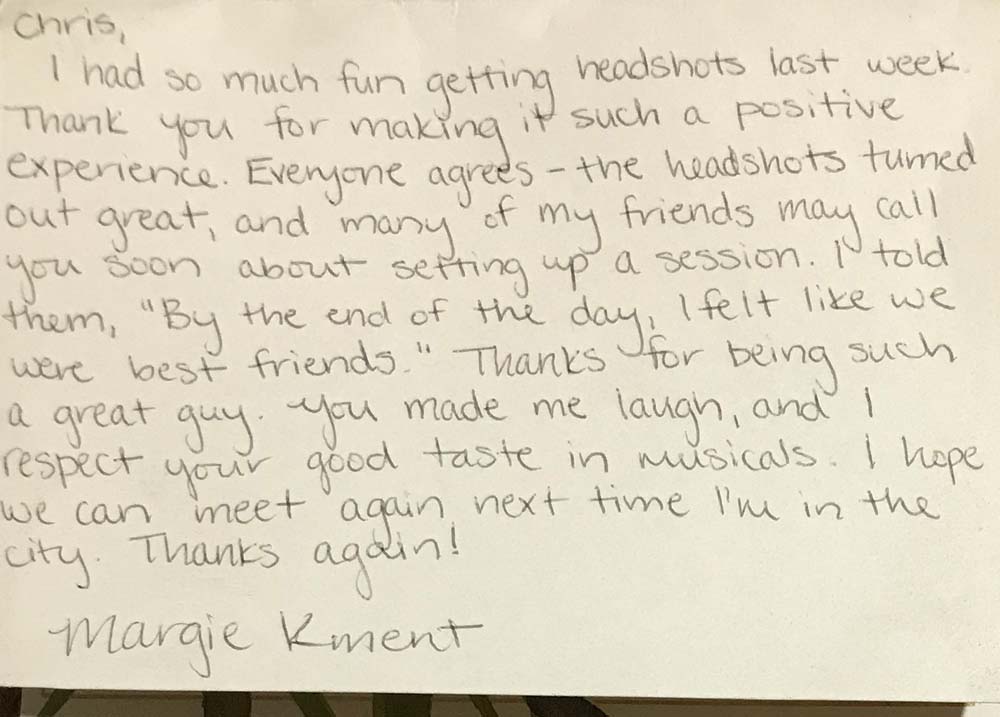 Chris,
I had so much fun getting headshots last week.
Thank you for making it such a positive
experience. Everyone agrees – the headshots turned
out great, and many of my friends may call
you soon about setting up a session. I told
them, "By the end of the day, I felt like we
were best friends." Thanks for being such
a great guy. You made me laugh, and I
respect your good taste in musicals. I hope
we can meet again next time I'm in the
city. Thanks again!
Margie Kment